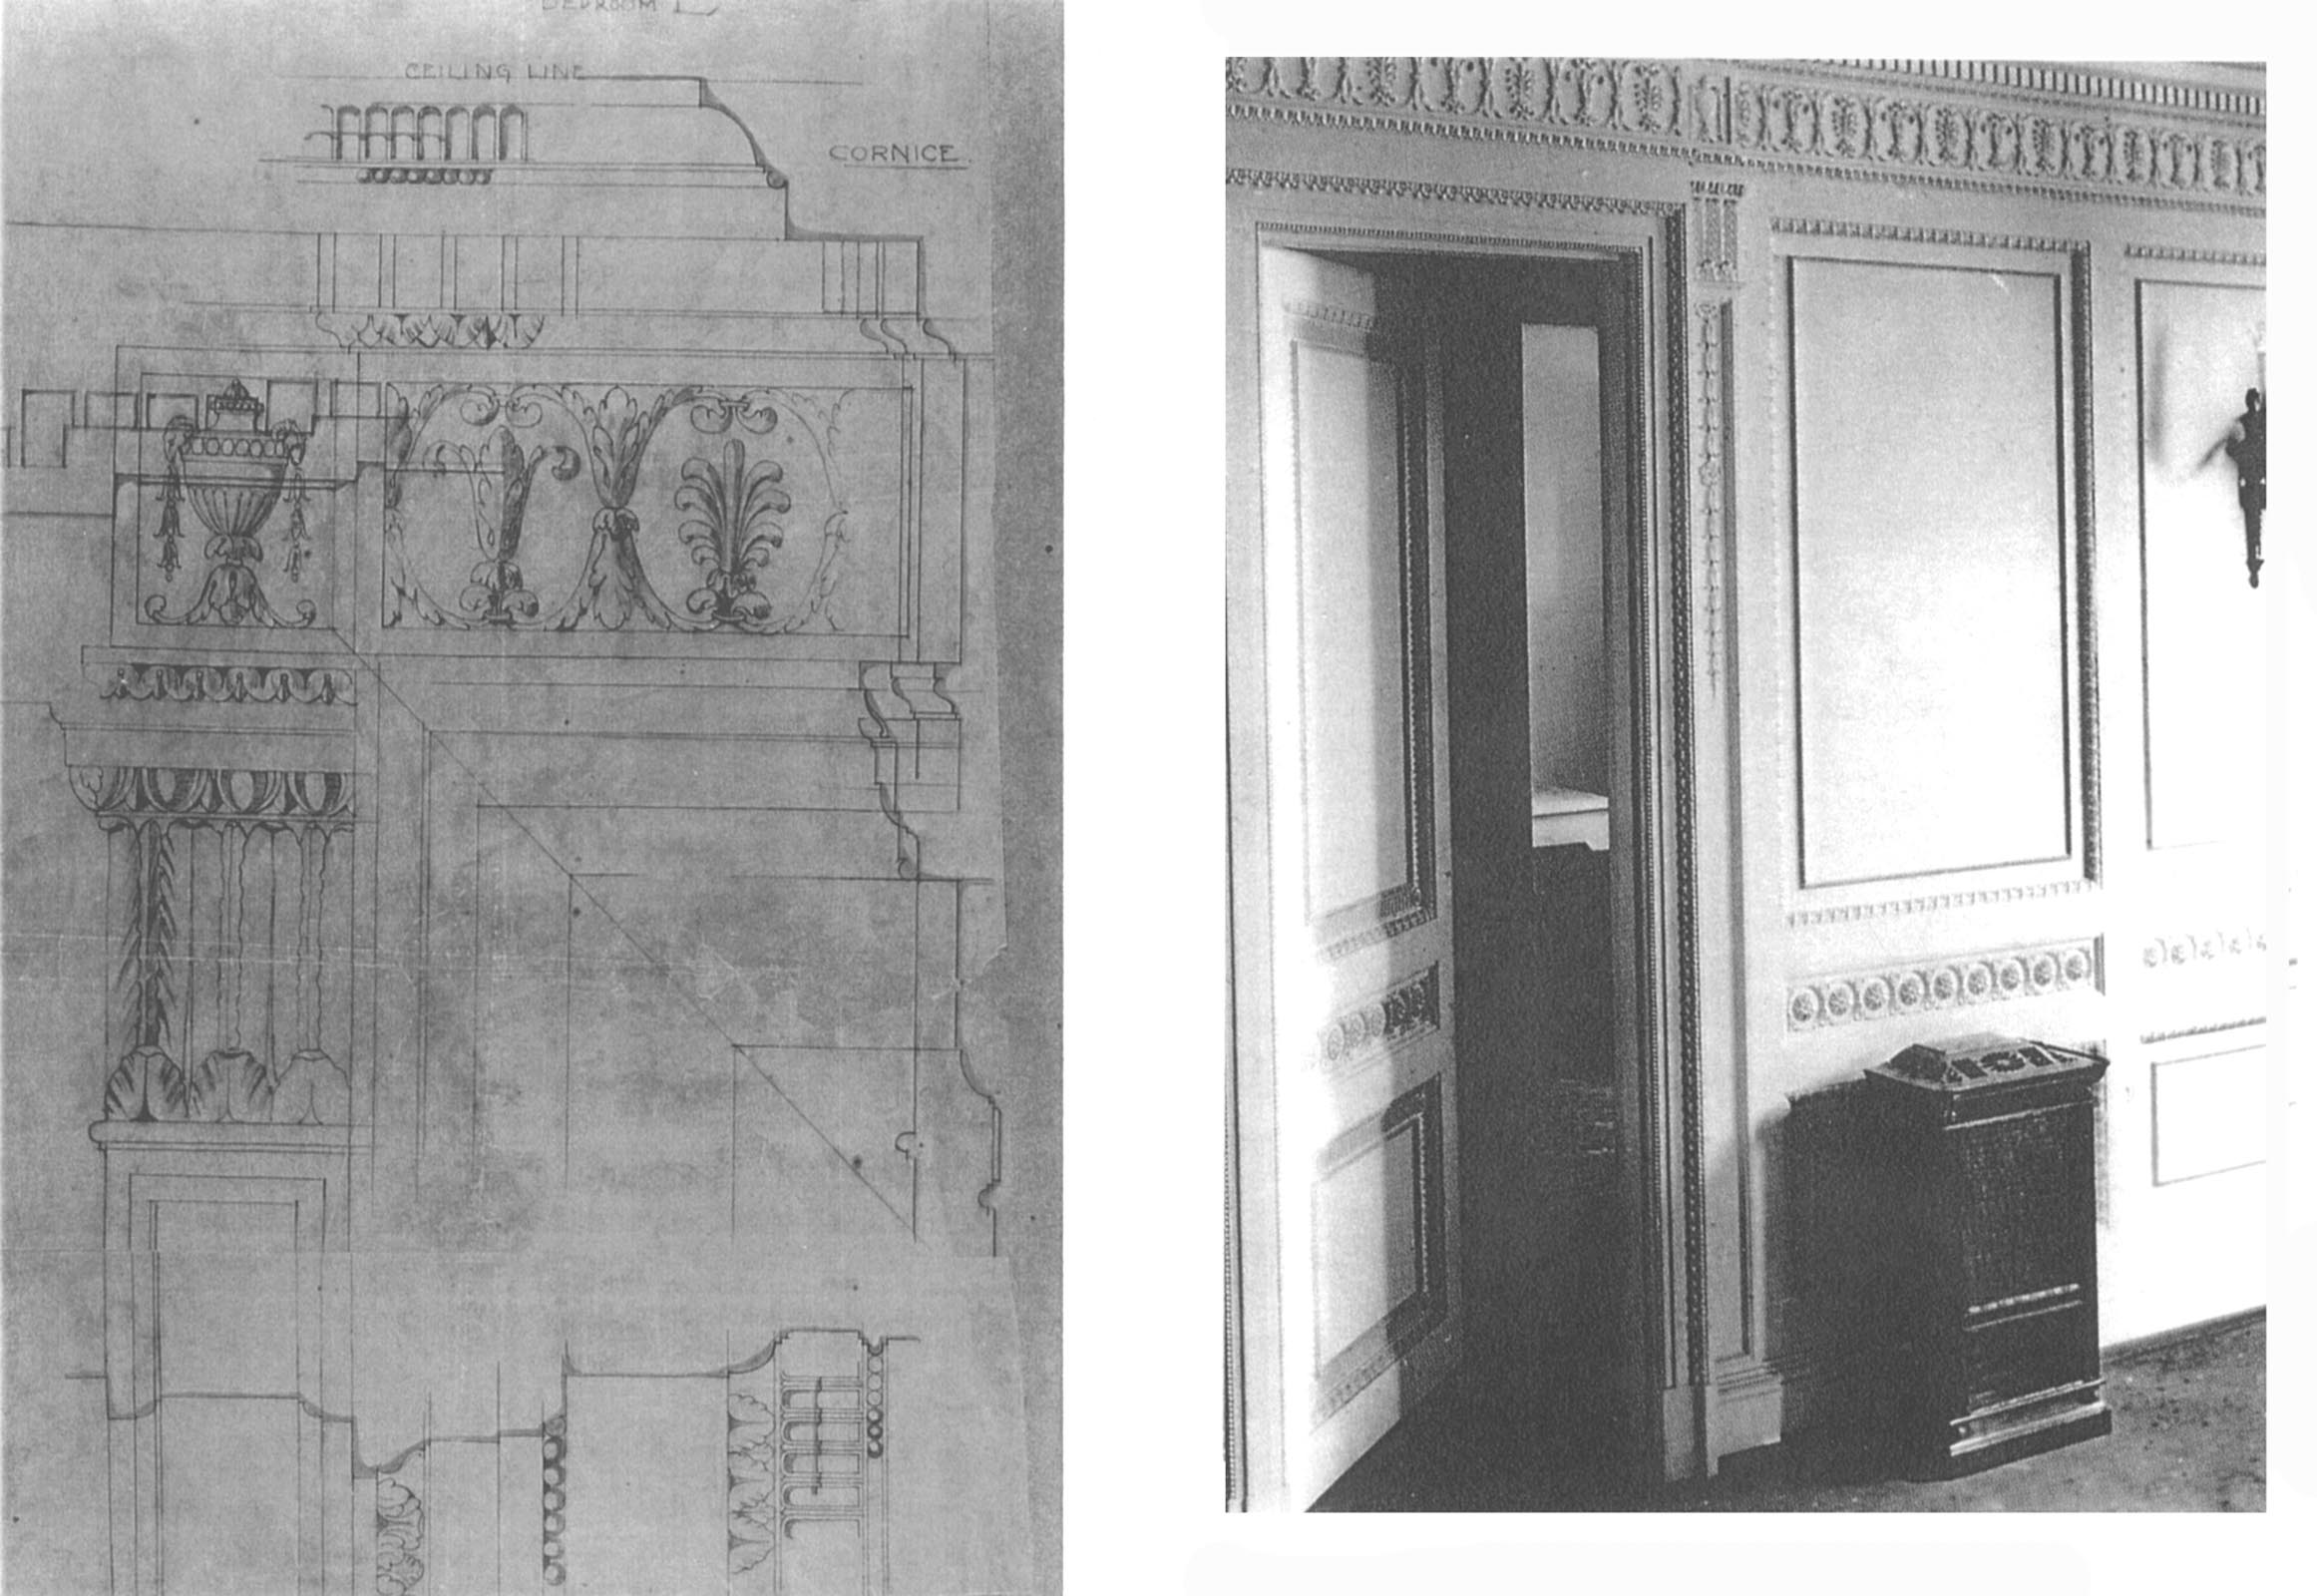 BEDROOM
CEILING LINE
CORNICE.